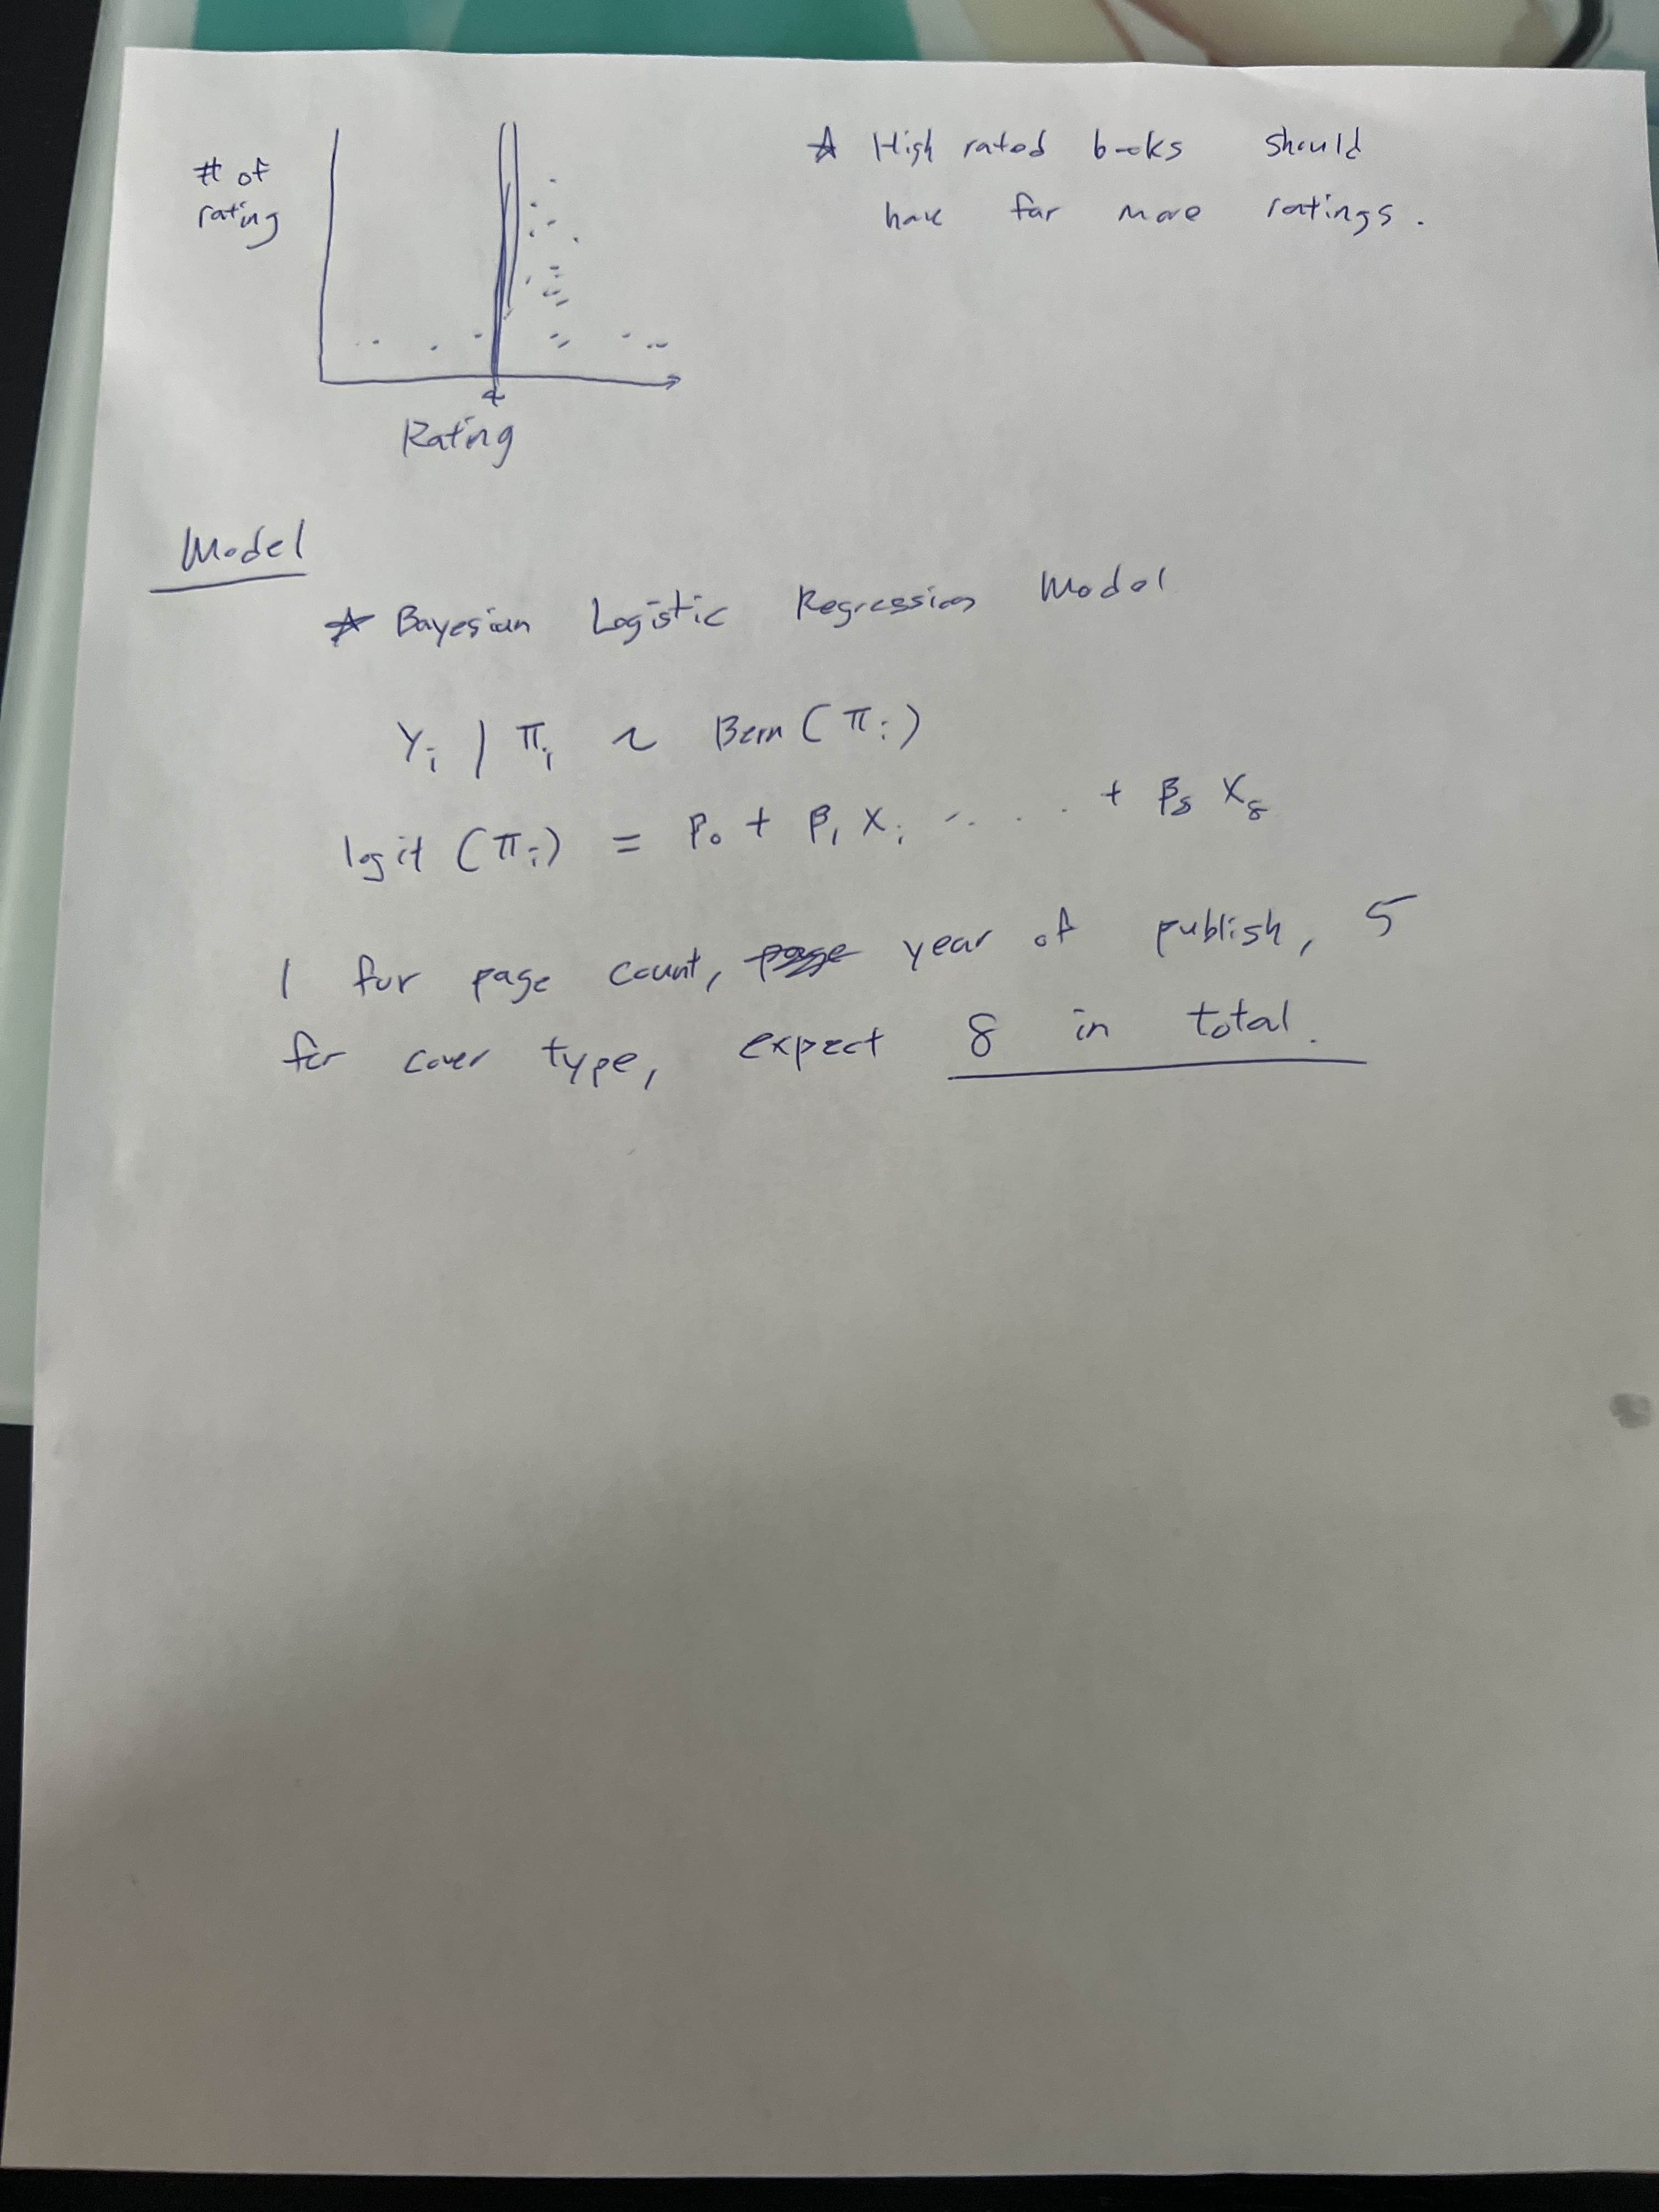 # of
rating
☆ High rated books should
have far more ratings.
4
Rating
Model
☆ Bayesian Logistic Regression Model
Yᵢ | πᵢ ~ Bern(πᵢ)
logit (πᵢ) = β₀ + β₁ Xᵢ .. . . . + β₈ X₈
1 for page count, ~~page~~ year of publish, 5
for cover type, expect 8 in total.